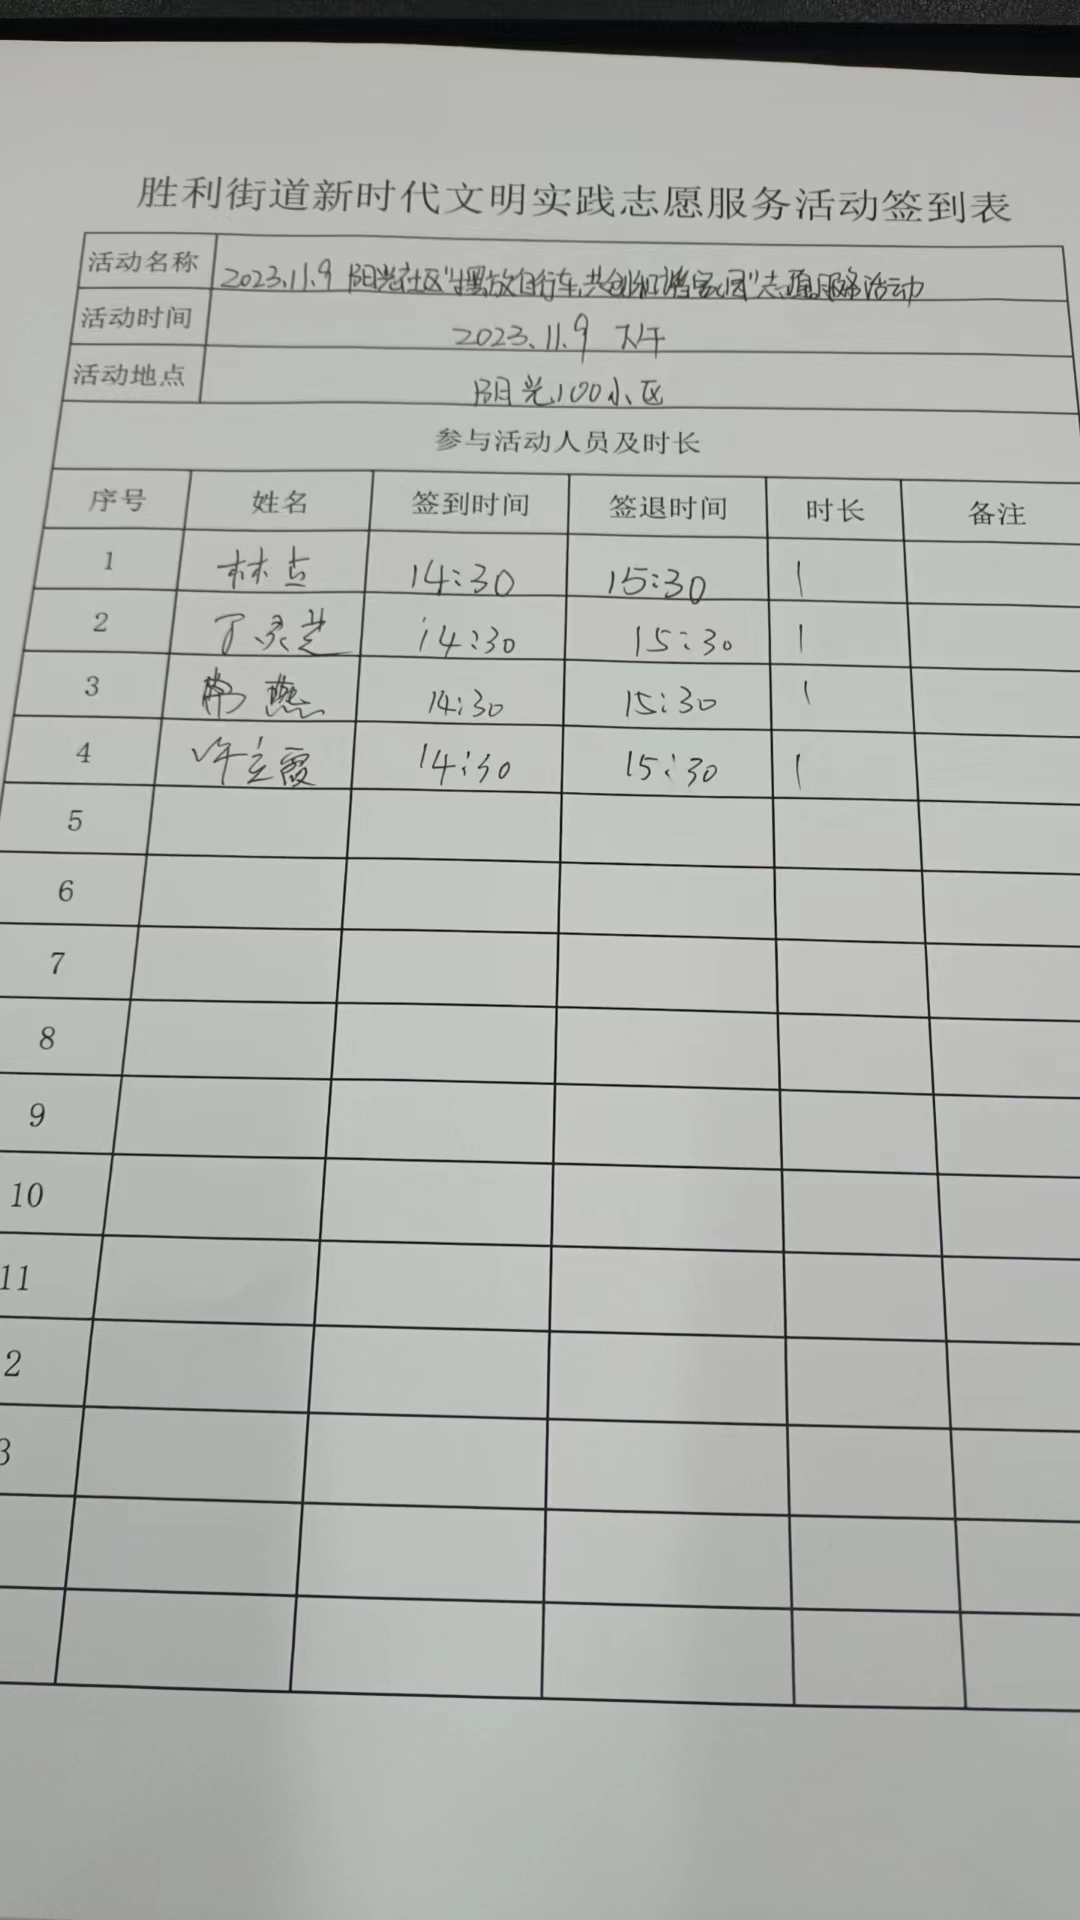 胜利街道新时代文明实践志愿服务活动签到表
活动名称 2023.11.9 阳光社区"摆放自行车,共创和谐家园"志愿服务活动
活动时间 2023.11.9 下午
活动地点 阳光100小区
参与活动人员及时长
序号 姓名 签到时间 签退时间 时长 备注
1 林 14:30 15:30 1
2 丁灵芝 14:30 15:30 1
3 燕 14:30 15:30 1
4 许立霞 14:30 15:30 1
5
6
7
8
9
10
11
2
3